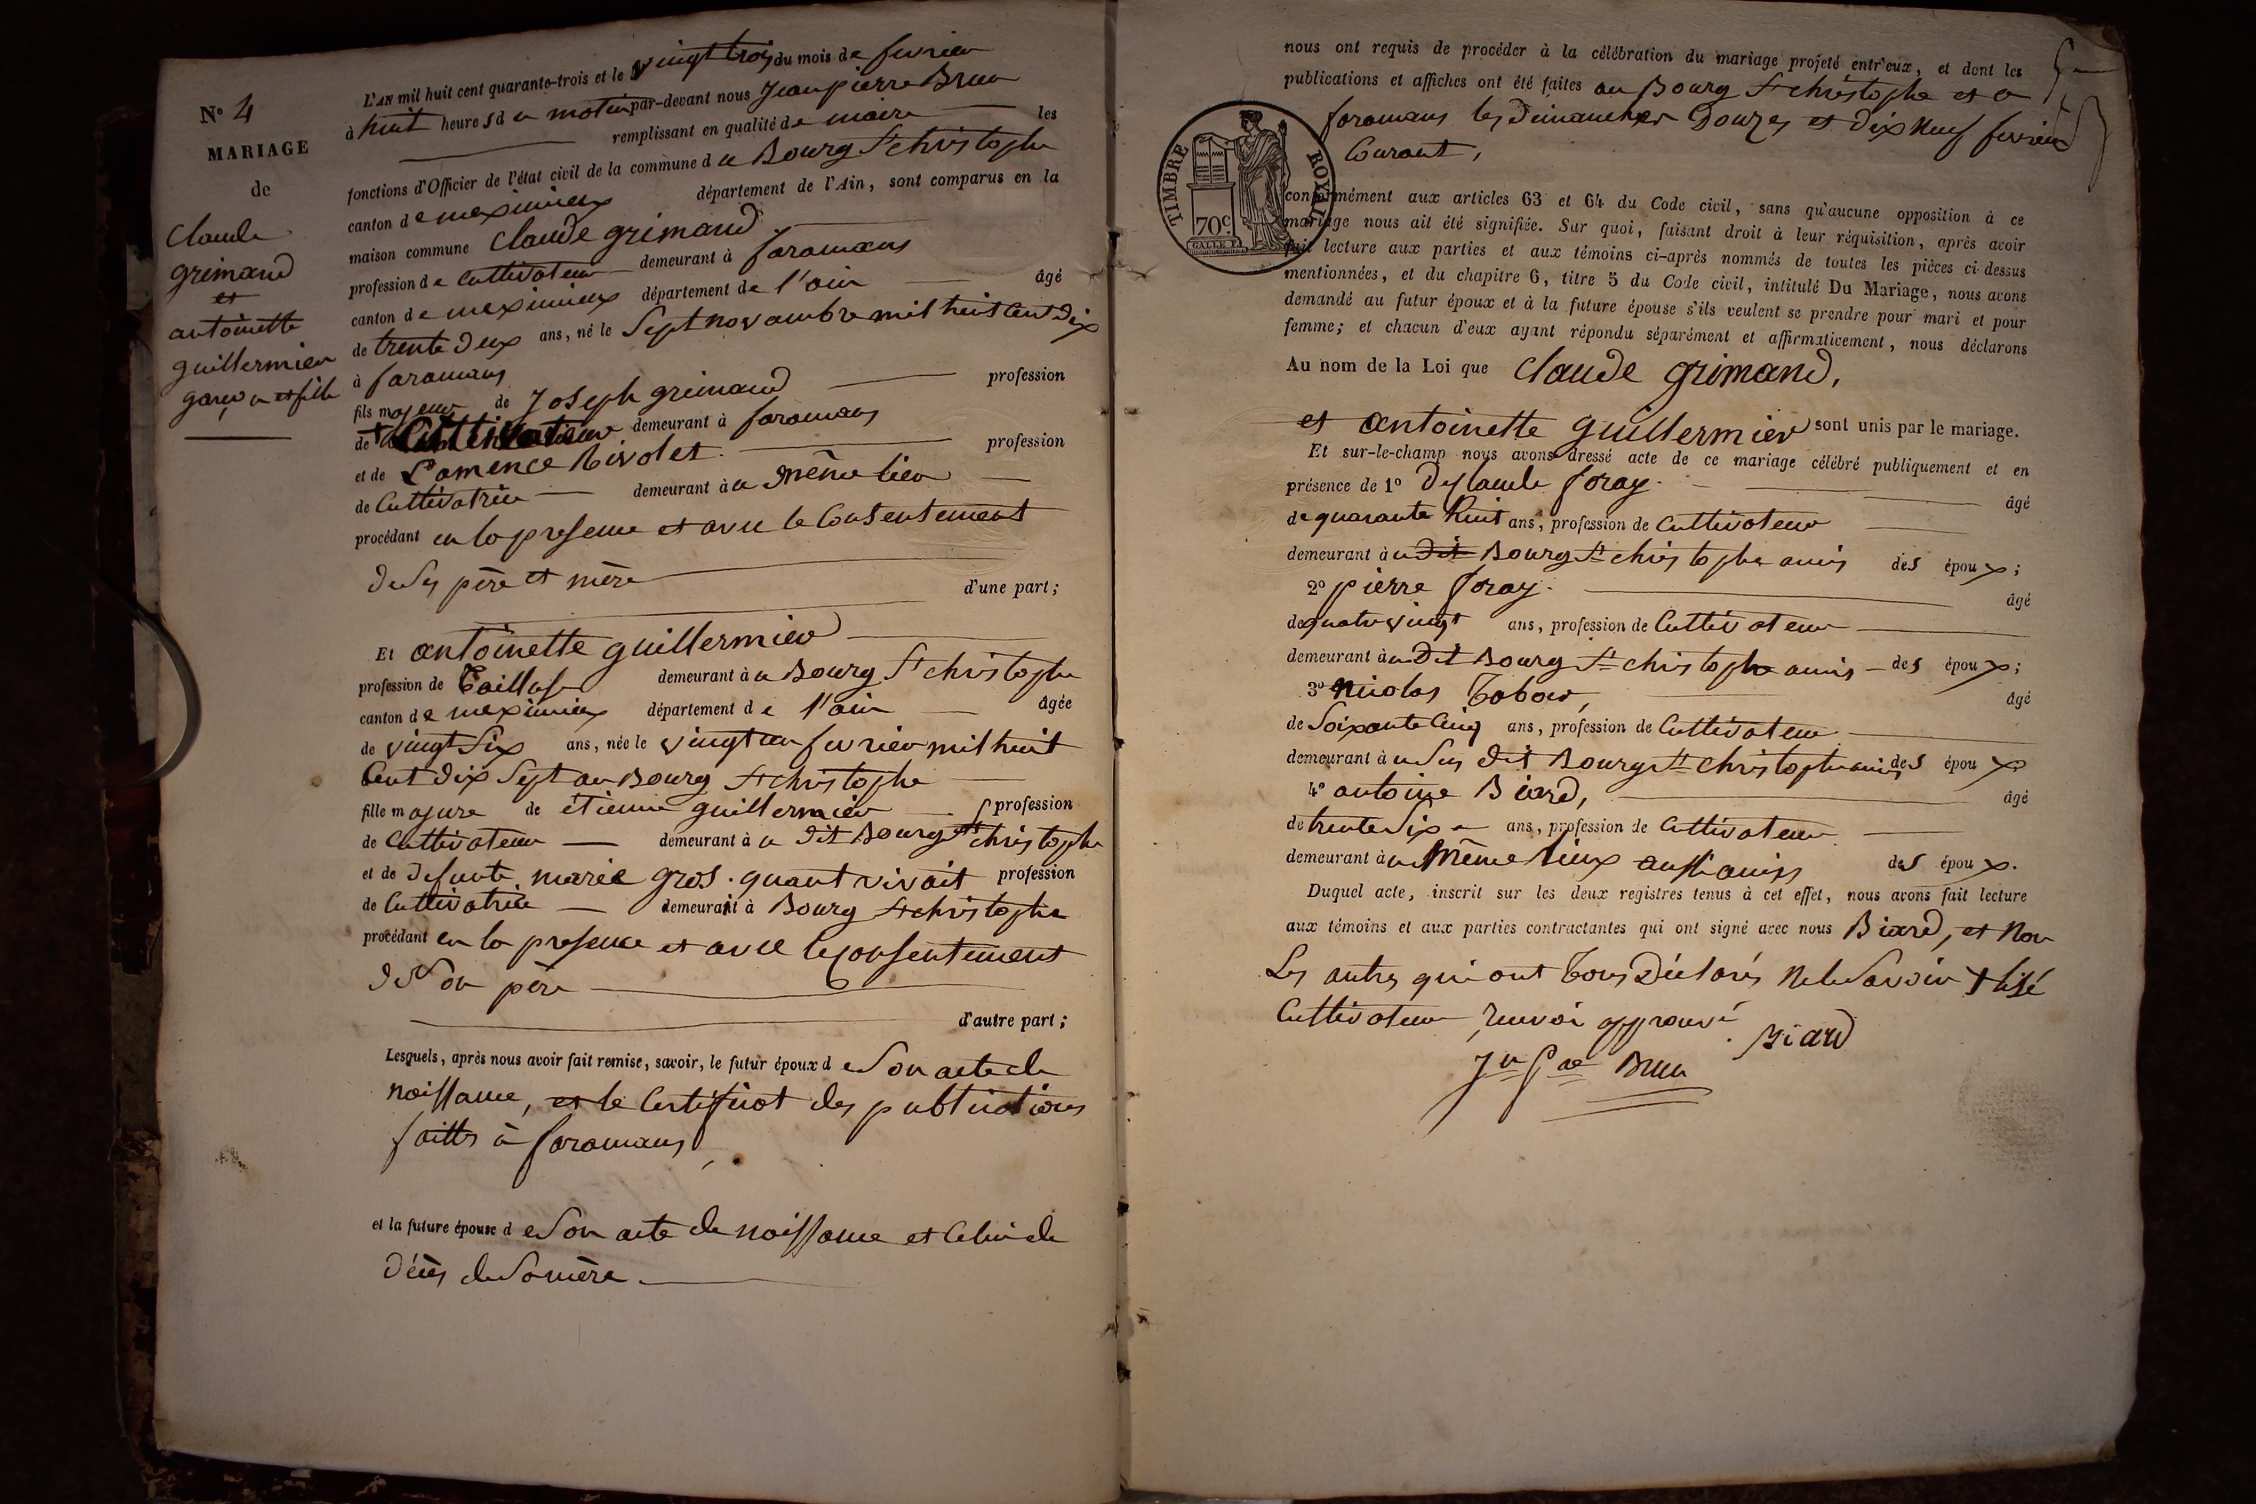 N° 4
MARIAGE
de
Claude
grimand
et
antoinette
guillermier
garçon et fille
L'AN mil huit cent quarante-trois et le vingt trois du mois de fevrier
à huit heures du matin par-devant nous Jean pierre Brun
remplissant en qualité de maire les
fonctions d'Officier de l'état civil de la commune du Bourg St christophe
canton de meximieux département de l'Ain, sont comparus en la
maison commune Claude grimand
profession de Cultivateur demeurant à faramans
canton de meximieux département de l'ain âgé
de trente deux ans, né le Sept novembre mil huit Cent dix
à faramans
fils majeur de Joseph grimand profession
de + Cultivateur demeurant à faramans
et de Rivolet profession
de Cultivatrice demeurant au même lieu
procédant en la presence et avec le Consentement
de Ses père et mère d'une part;
Et antoinette guillermier
profession de Tailleuse demeurant au Bourg St christophe
canton de meximieux département de l'ain âgée
de vingt Six ans, née le vingt un fevrier mil huit
Cent dix Sept au Bourg St christophe
fille majeure de étienne guillermier profession
de Cultivateur demeurant au dit Bourg St christophe
et de defunte marie gros. quant vivait profession
de Cultivatrice demeurait à Bourg St christophe
procédant en la presence et avec le Consentement
de Son père
d'autre part;
Lesquels, après nous avoir fait remise, savoir, le futur époux de Son acte de
naissance, et le Certificat des publications
faittes à faramans,
et la future épouse de Son acte de naissance et Celui de
décès de Sa mère
nous ont requis de procéder à la célébration du mariage projeté entr'eux, et dont les
publications et affiches ont été faites au Bourg St christophe et a
faramans les dimanches Douzes et dix neuf fevrier
Courant,
TIMBRE ROYAL
70c
conformément aux articles 63 et 64 du Code civil, sans qu'aucune opposition à ce
mariage nous ait été signifiée. Sur quoi, faisant droit à leur réquisition, après avoir
fait lecture aux parties et aux témoins ci-après nommés de toutes les pièces ci-dessus
mentionnées, et du chapitre 6, titre 5 du Code civil, intitulé Du Mariage, nous avons
demandé au futur époux et à la future épouse s'ils veulent se prendre pour mari et pour
femme; et chacun d'eux ayant répondu séparément et affirmativement, nous déclarons
Au nom de la Loi que Claude grimand,
et antoinette guillermier sont unis par le mariage.
Et sur-le-champ nous avons dressé acte de ce mariage célébré publiquement et en
présence de 1° foray âgé
de quarante huit ans, profession de Cultivateur
demeurant au dit Bourg St christophe amis des époux;
2° pierre foray. âgé
de quatre vingt ans, profession de Cultivateur
demeurant au dit Bourg St christophe amis des époux;
3° nicolas âgé
de Soixante Cinq ans, profession de Cultivateur
demeurant au Sus dit Bourg St christophe amis des époux
4° antoine Biard, âgé
de trente Six ans, profession de Cultivateur
demeurant au même lieux aussi amis des époux.
Duquel acte, inscrit sur les deux registres tenus à cet effet, nous avons fait lecture
aux témoins et aux parties contractantes qui ont signé avec nous Biard, et non
Les autres qui ont Tous Déclarés ne le Savoir + lisé
Cultivateur renvoi approuvé.
Biard
Jn Pre Brun